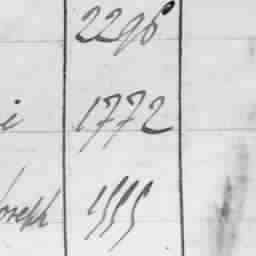 2296
i 1772
Joseph 1555